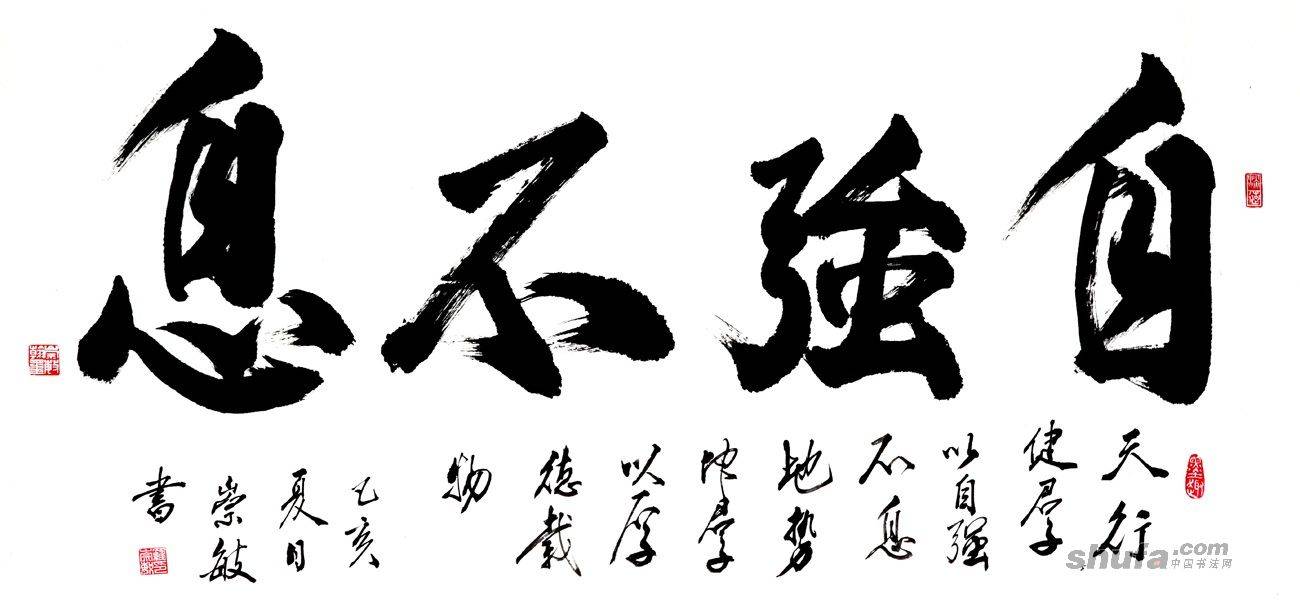 自強不息
天行
健君子
以自强
不息
地势
坤君子
以厚
德載
物
己亥
夏日
崇敏
書
shufa.com
中国书法网